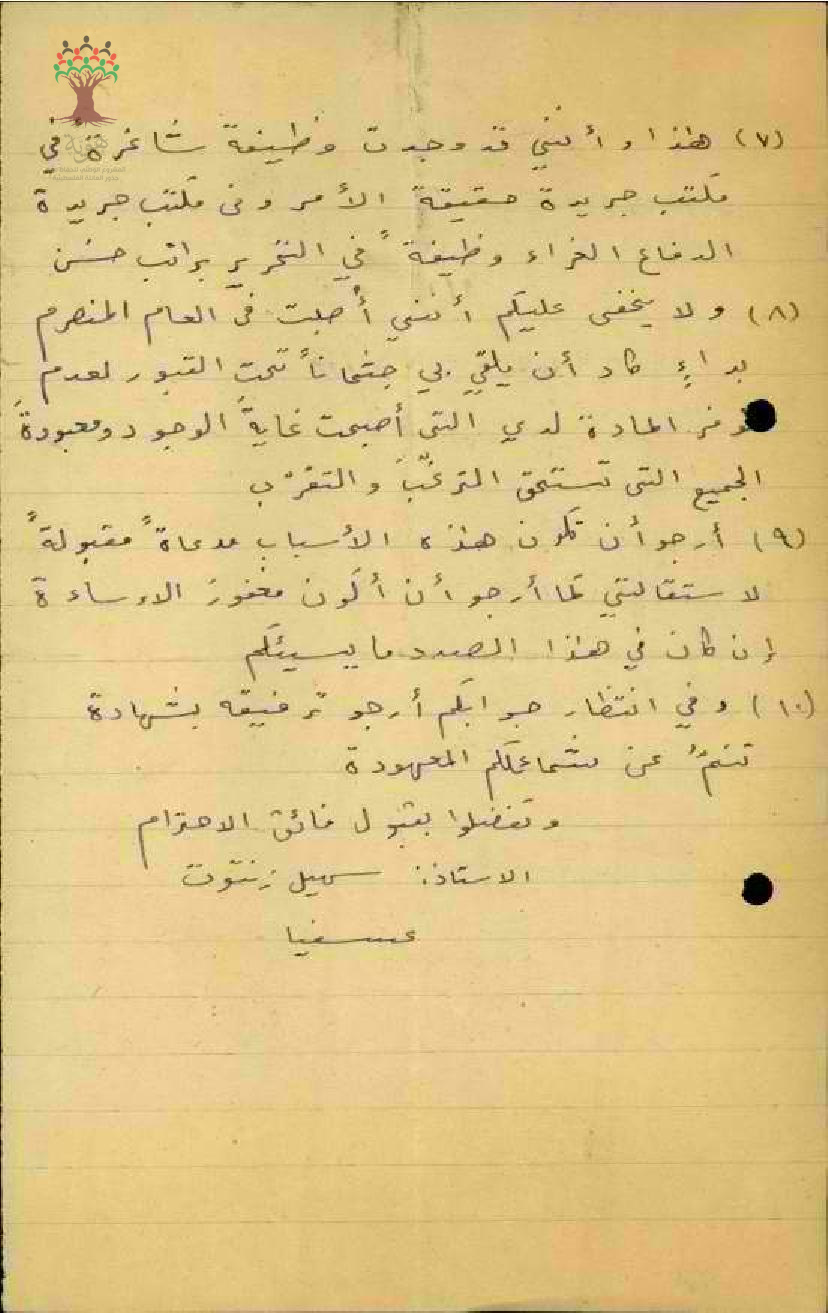 (٧) هذا وأنني قد وجدت وظيفة شاغرةً في
مكتب جريدة حقيقة الأمر وفي مكتب جريدة
الدفاع الغراء وظيفةً في التحرير براتب حسن
(٨) ولا يخفى عليكم أنني أُصبت في العام المنصرم
بداءٍ كاد أن يلقي بي جثماناً تحت القبور لعدم
توفر المادة لدي التي أصبحت غايةَ الوجود ومعبودةَ
الجميع التي تستحق الترغّبَ والتقرّب
(٩) أرجو أن تكون هذه الأسباب مدعاةً مقبولةً
لاستقالتي كما أرجو أن أكون مغفورَ الإساءة
إن كان في هذا الصدد ما يسيئكم
(١٠) وفي انتظار جوابكم أرجو ترفيقه بشهادة
تنمّ عن شمائلكم المعهودة
وتفضلوا بقبول فائق الاحترام
الاستاذ: سهيل زنتوت
عسفيا